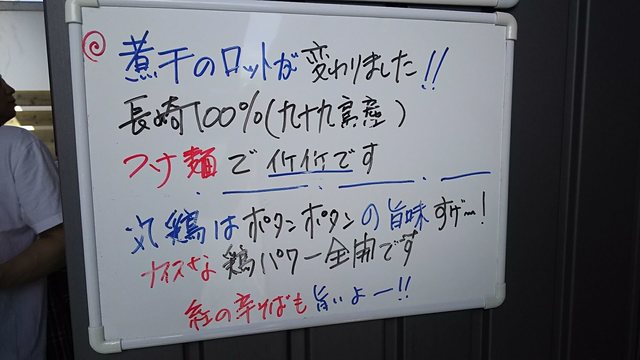 煮干のロットが変わりました!!
長崎100%(九十九島産)
つけ麺でイケイケです
丸鶏はボタンボタンの旨味すげー!
ナイスな鶏パワー全開です
紅の辛そばも旨いよー!!